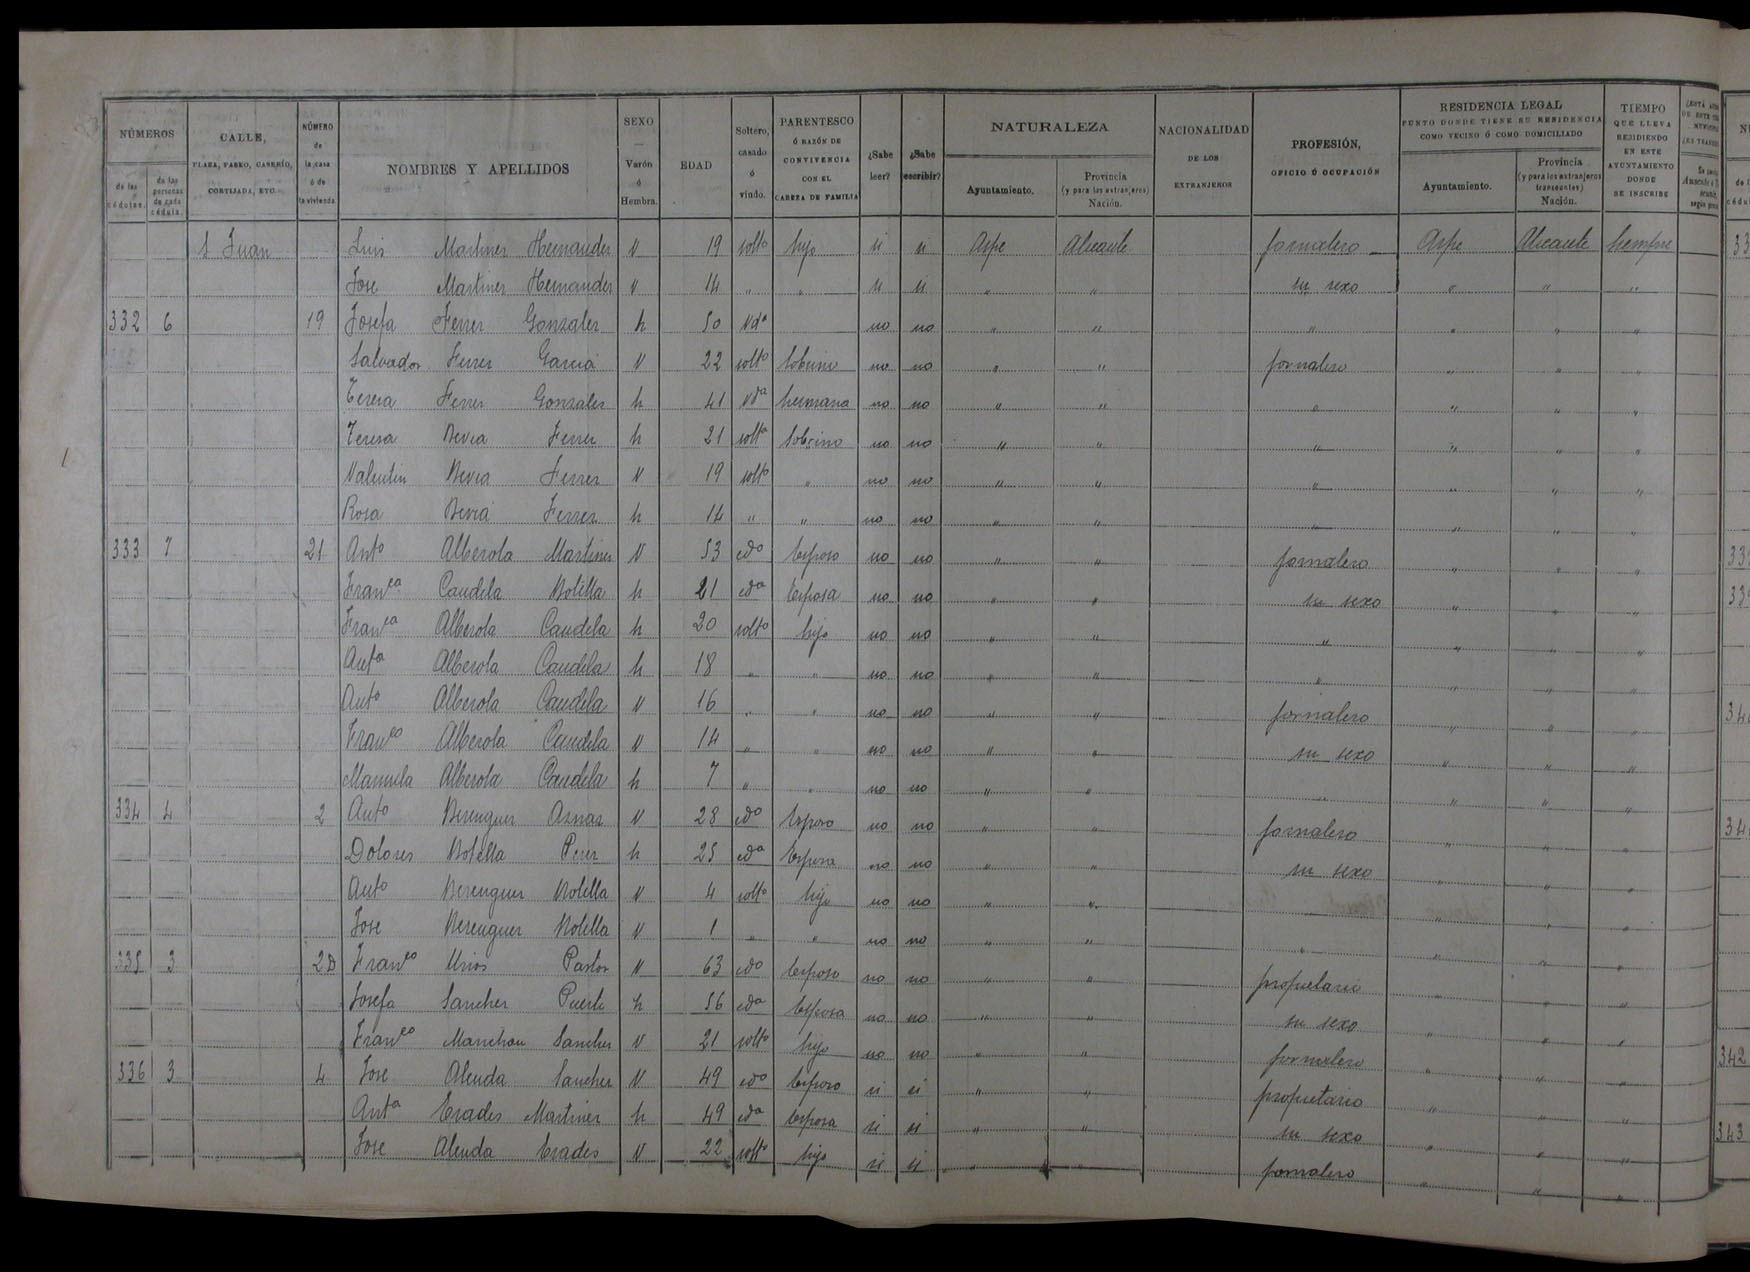 NÚMEROS
de las cédulas.
de las personas de cada cédula.
CALLE,
PLAZA, PASEO, CASERÍO,
CORTIJADA, ETC.
NÚMERO
de
la casa
ó de
la vivienda.
NOMBRES Y APELLIDOS
SEXO
Varón
ó
Hembra.
EDAD
Soltero,
casado
ó
viudo.
PARENTESCO
Ó RAZÓN DE
CONVIVENCIA
CON EL
CABEZA DE FAMILIA
¿Sabe leer?
¿Sabe escribir?
NATURALEZA
Ayuntamiento.
Provincia
(y para los extranjeros)
Nación.
NACIONALIDAD
DE LOS
EXTRANJEROS
PROFESIÓN,
OFICIO Ú OCUPACIÓN
RESIDENCIA LEGAL
PUNTO DONDE TIENE SU RESIDENCIA
COMO VECINO Ó COMO DOMICILIADO
Ayuntamiento.
Provincia
(y para los extranjeros
transeuntes)
Nación.
TIEMPO
QUE LLEVA
RESIDIENDO
EN ESTE
AYUNTAMIENTO
DONDE
SE INSCRIBE
S Juan Luis Martinez Hernandez V 19 solto hijo si si Aspe Alicante jornalero Aspe Alicante siempre
Jose Martinez Hernandez V 14 " " si si " " su sexo " " "
332 6 19 Josefa Ferrer Gonzalez h 50 Vda no no " " " " " "
Salvador Ferrer Garcia V 22 solto Sobrino no no " " jornalero " " "
Teresa Ferrer Gonzalez h 41 Vda hermana no no " " " " " "
Teresa Bevia Ferrer h 21 solta Sobrino no no " " " " " "
Valentin Bevia Ferrer V 19 solto " no no " " " " " "
Rosa Bevia Ferrer h 14 " " no no " " " " " "
333 7 21 Anto Alberola Martinez V 53 cdo Esposo no no " " jornalero " " "
Franca Candela Botella h 21 cda Esposa no no " " su sexo " " "
Franca Alberola Candela h 20 solto hijo no no " " " " " "
Anta Alberola Candela h 18 " " no no " " " " " "
Anto Alberola Candela V 16 " " no no " " jornalero " " "
Franco Alberola Candela V 14 " " no no " " su sexo " " "
Manuela Alberola Candela h 7 " " no no " " " " " "
334 4 2 Anto Berenguer Asnar V 28 cdo Esposo no no " " jornalero " " "
Dolores Botella Perez h 25 cda Esposa no no " " su sexo " " "
Anto Berenguer Botella V 4 solto hijo no no " " " " "
Jose Berenguer Botella V 1 " " no no " " " " " "
335 3 2D Franco Urios Pastor V 63 cdo Esposo no no " " propietario " " "
Josefa Sanchez Puerto h 56 cda Esposa no no " " su sexo " " "
Franco Manchon Sanchez V 21 solto hijo no no " " jornalero " " "
336 3 4 Jose Alenda Sanchez V 49 cdo Esposo si si " " propietario " " "
Anta Erades Martinez h 49 cda Esposa si si " " su sexo " " "
Jose Alenda Erades V 22 solto hijo si si " " jornalero " " "
342
343